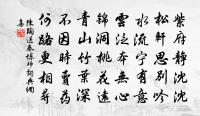 紫府静沈沈
松軒思別吟
水流寧有意
雲泛本無心
錦洞桃花遠
青山竹葉深
不因時賣藥
何路更相尋
陳陶送秦煉師詞典網
集